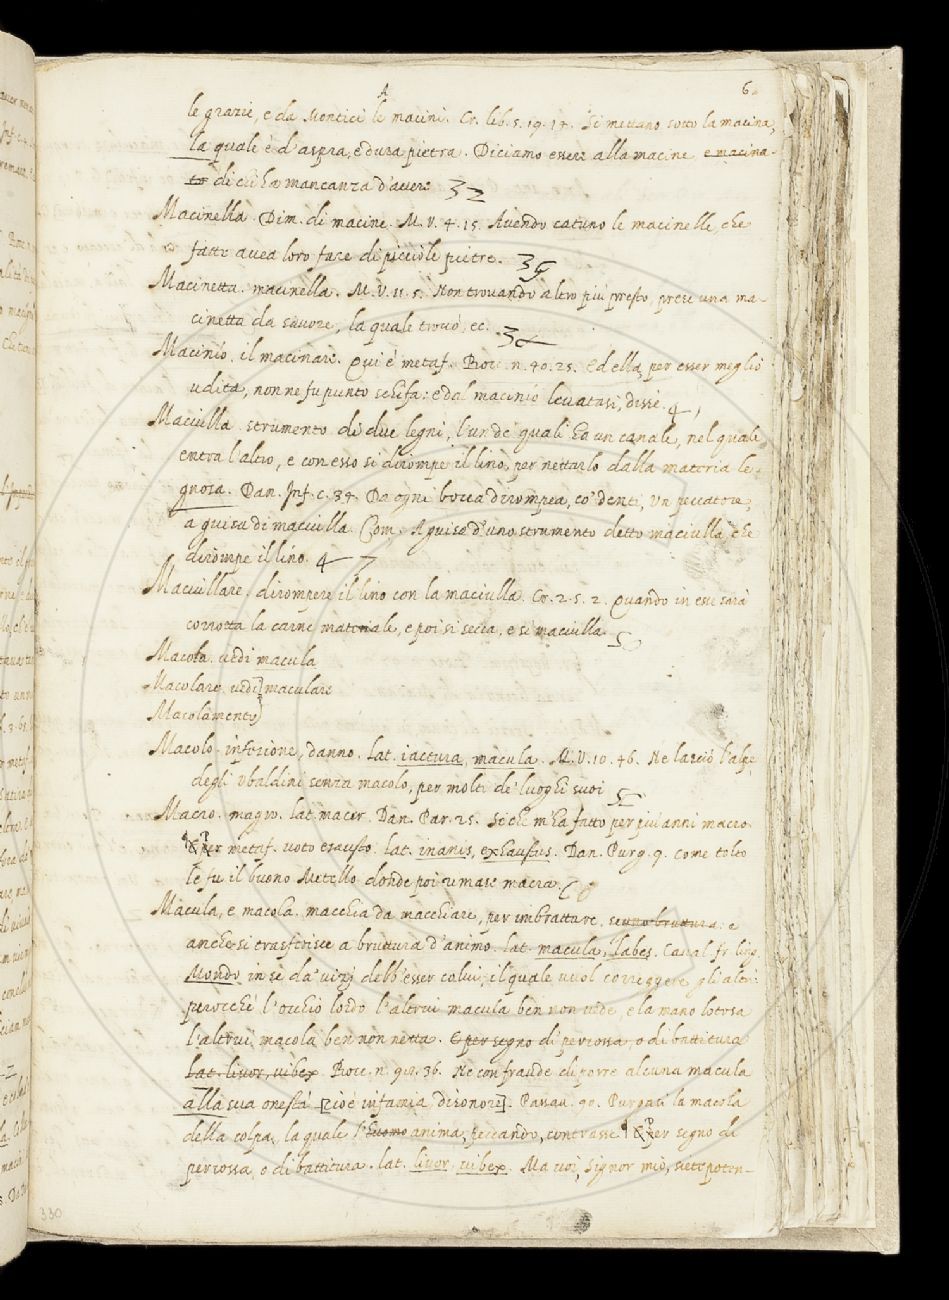 A 6
le grazie, e da Montici le macini. Cr. lib. 5. 19. 14. Si mettano sotto la macina,
la quale è d'aspra, e dura pietra. Diciamo essere alla macine e macina-
to di chi ha mancanza d'avere 32
Macinella. Dim. di macine. M. V. 4. 15. Avendo catuno le macinelle, che
fatte avea loro fare di picciole pietre.
Macinetta. macinella. M. V. 11. 5. Non trovando altro più presto, prese una ma-
cinetta da savore, la quale trovò, ec.
Macinio. il macinare. Qui è metaf. Bocc. n. 40. 25. Ed ella, per esser meglio
udita, non ne fu punto schifa: e dal macinio levatasi, disse
Maciulla. strumento di due legni, l'un de' quali ha un canale, nel quale
entra l'altro, e con esso si dirompe il lino, per nettarlo dalla materia le-
gnosa. Dan. Inf. c. 34. Da ogni bocca dirompea, co' denti, Un peccatore,
a guisa di maciulla. Com. A guisa d'uno strumento detto maciulla, che
dirompe il lino. 47
Maciullare. dirompere il lino con la maciulla. Cr. 2. 5. 2. Quando in esse sarà
corrotta la carne materiale, e poi si secca, e si maciulla
Macola. vedi macula
Macolare. vedi] maculare
Macolamento)
Macolo. infezione, danno. lat. iactura, macula. M. V. 10. 46. Ne lasciò l'alpe
degli Ubaldini senza macolo, per molti de' luoghi suoi
Macro. magro. lat. macer. Dan. Par. 25. Sì che m'ha fatto per più anni macro
¶ Per metaf. voto esausto. lat. inanis, exhaustus. Dan. Purg. 9. come tolto
le fu il buono Metello donde poi rimase macra.
Macula, e macola. macchia da macchiare, per imbrattare. bruttura. e
anche si trasferisce a bruttura d'animo. lat. macula, labes. Caval. fr. ling.
Mondo in se da' vizj debb'esser colui, il quale vuol correggere gli altri
perocchè l'occhio lordo l'altrui macula ben non vede, e la mano lotosa
l'altrui macola ben non netta. E per segno di percossa, o di battitura
lat. livor, vibex. Bocc. n. 98. 36. Ne con fraude di porre alcuna macula
alla sua onestà [cioè infamia disonore]. Passav. 90. Purgasi la macola
della colpa, la quale l'huomo anima, peccando, contrasse ¶ Per segno di
percossa, o di battitura. lat. livor, vibex. Ma voi, Signor mio, siete poten-
330